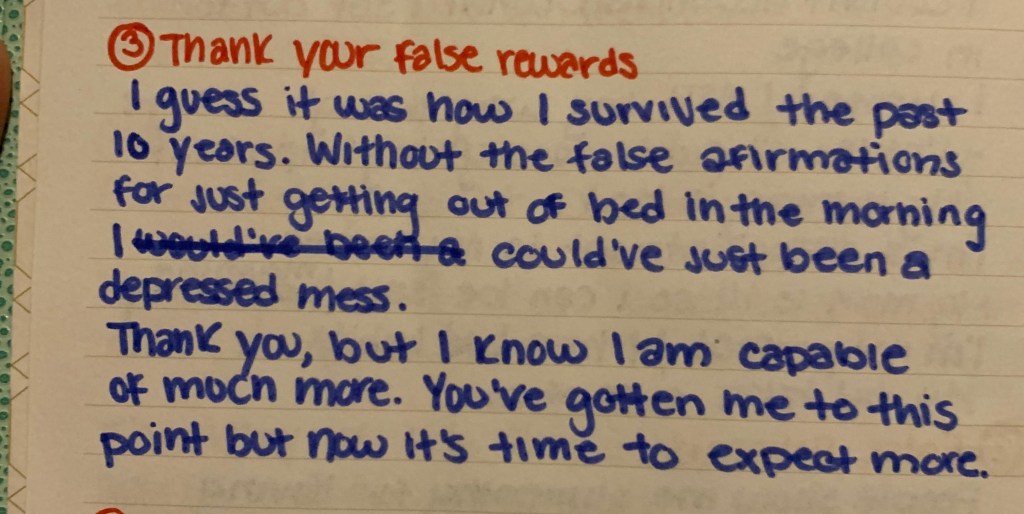 ③ Thank your false rewards
I guess it was how I survived the past
10 years. Without the false afirmations
for just getting out of bed in the morning
I would've been a could've just been a
depressed mess.
Thank you, but I know I am capable
of much more. You've gotten me to this
point but now it's time to expect more.